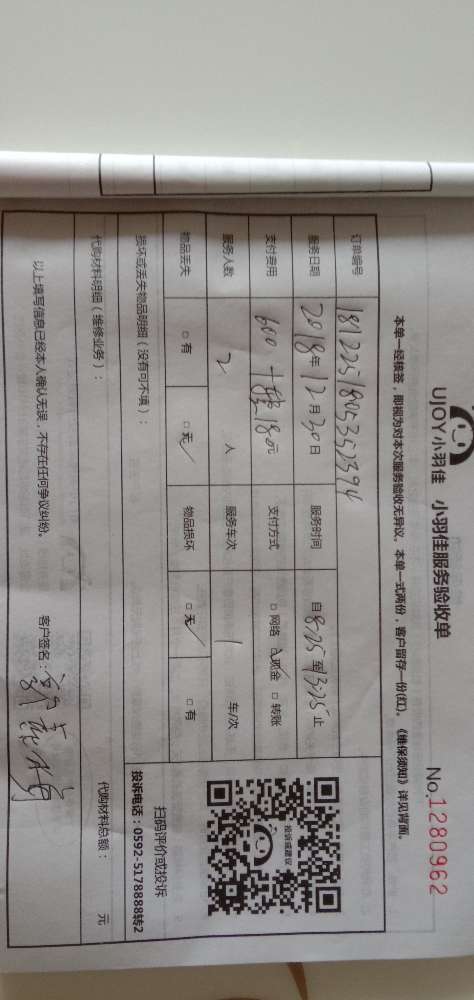 UJOY小羽佳 小羽佳服务验收单
No.1280962
本单一经核签，即视为对本次服务验收无异议。本单一式两份，客户留存一份(红)。《维保须知》详见背面。
订单编号 1812251805352394
服务日期 2018年12月30日 服务时间 自8:25至13:25止
支付费用 600 180元 支付方式 □网络 □现金 □转账
服务人数 2 人 服务车次 1 车/次
物品丢失 □有 □无 物品损坏 □无 □有
损坏或丢失物品明细（没有可不填）：
代购材料明细（维修业务）：
代购材料总额： 元
以上填写信息已经本人确认无误，不存在任何争议纠纷。
客户签名：
投诉或建议
扫码评价或投诉
投诉电话：0592-5178888转2